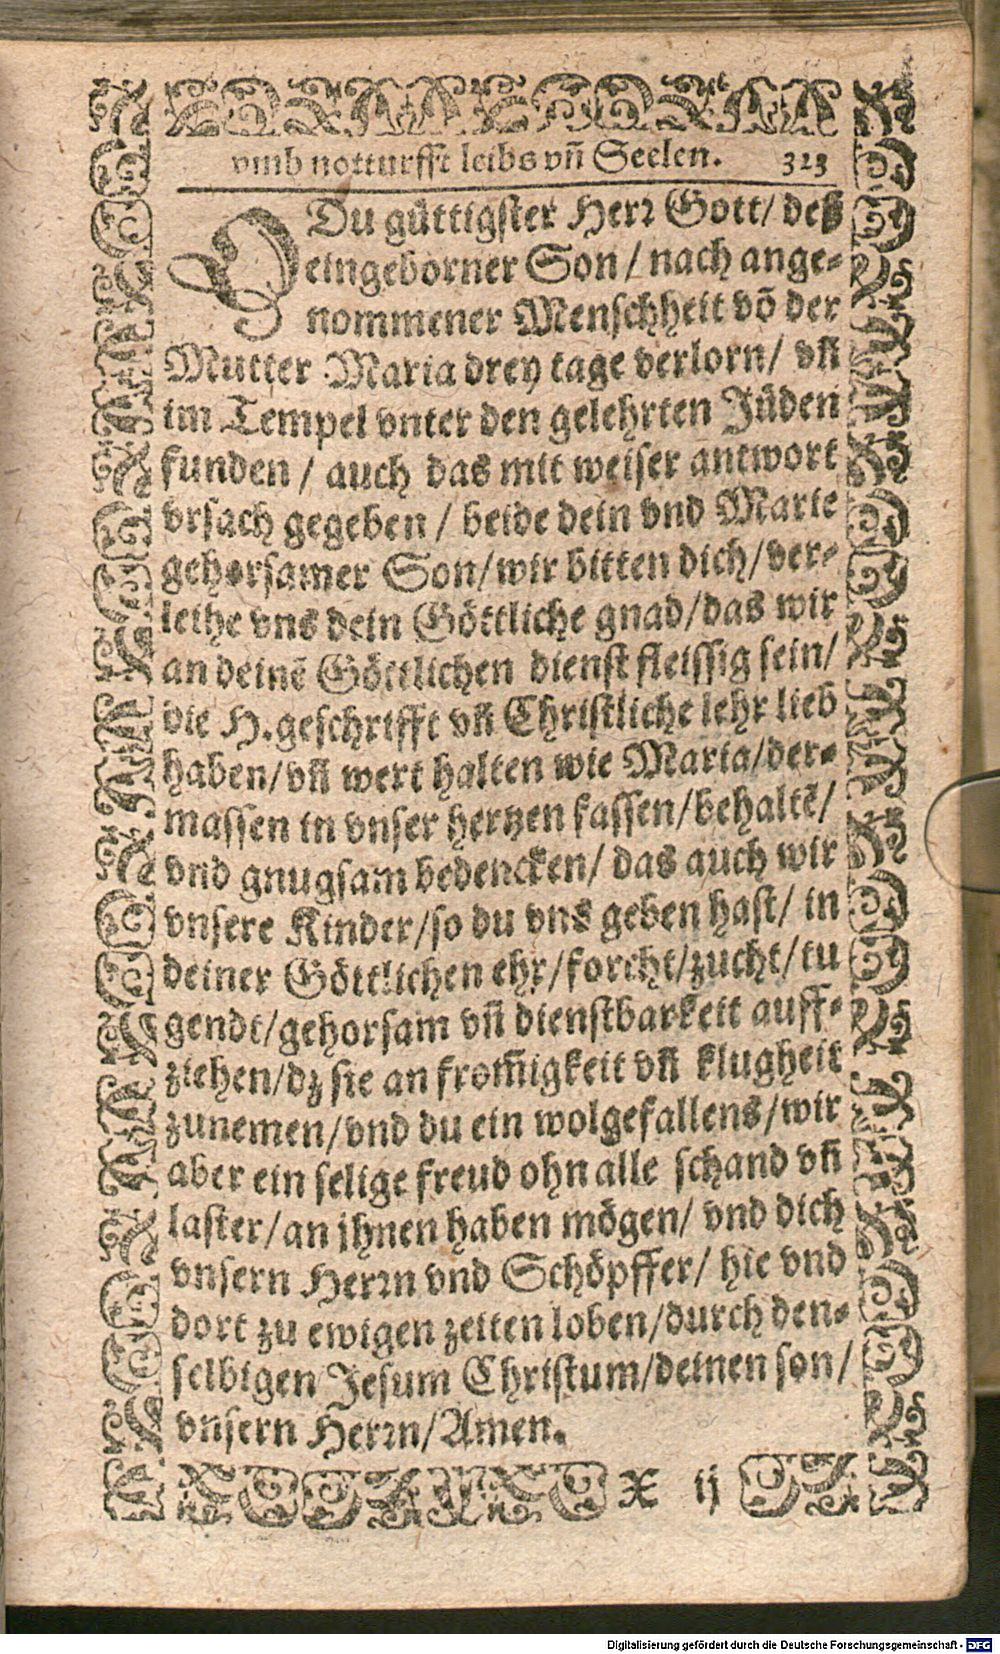 vmb notturfft leibs vñ Seelen. 323
O Du güttigster Herr Gott/ deß
eingeborner Son/ nach ange-
nommener Menschheit võ der
Mutter Maria drey tage verlorn/ vñ
im Tempel vnter den gelehrten Jüden
funden/ auch das mit weiser antwort
vrsach gegeben/ beide dein vnd Marie
gehorsamer Son/ wir bitten dich/ ver-
leihe vns dein Göttliche gnad/ das wir
an deinẽ Göttlichen dienst fleissig sein/
die H. geschrifft vñ Christliche lehr lieb
haben/ vñ wert halten wie Maria/ der-
massen in vnser hertzen fassen/ behaltẽ/
vnd gnugsam bedencken/ das auch wir
vnsere Kinder/ so du vns geben hast/ in
deiner Göttlichen ehr/ forcht/ zucht/ tu
gendt/ gehorsam vñ dienstbarkeit auff-
ziehen/ dz sie an from̃igkeit vñ klugheit
zunemen/ vnd du ein wolgefallens/ wir
aber ein selige freud ohn alle schand vñ
laster/ an jhnen haben mögen/ vnd dich
vnsern Herrn vnd Schöpffer/ hie vnd
dort zu ewigen zeiten loben/ durch den-
selbigen Jesum Christum/ deinen son/
vnsern Herrn/ Amen.
X ij
Digitalisierung gefördert durch die Deutsche Forschungsgemeinschaft - DFG